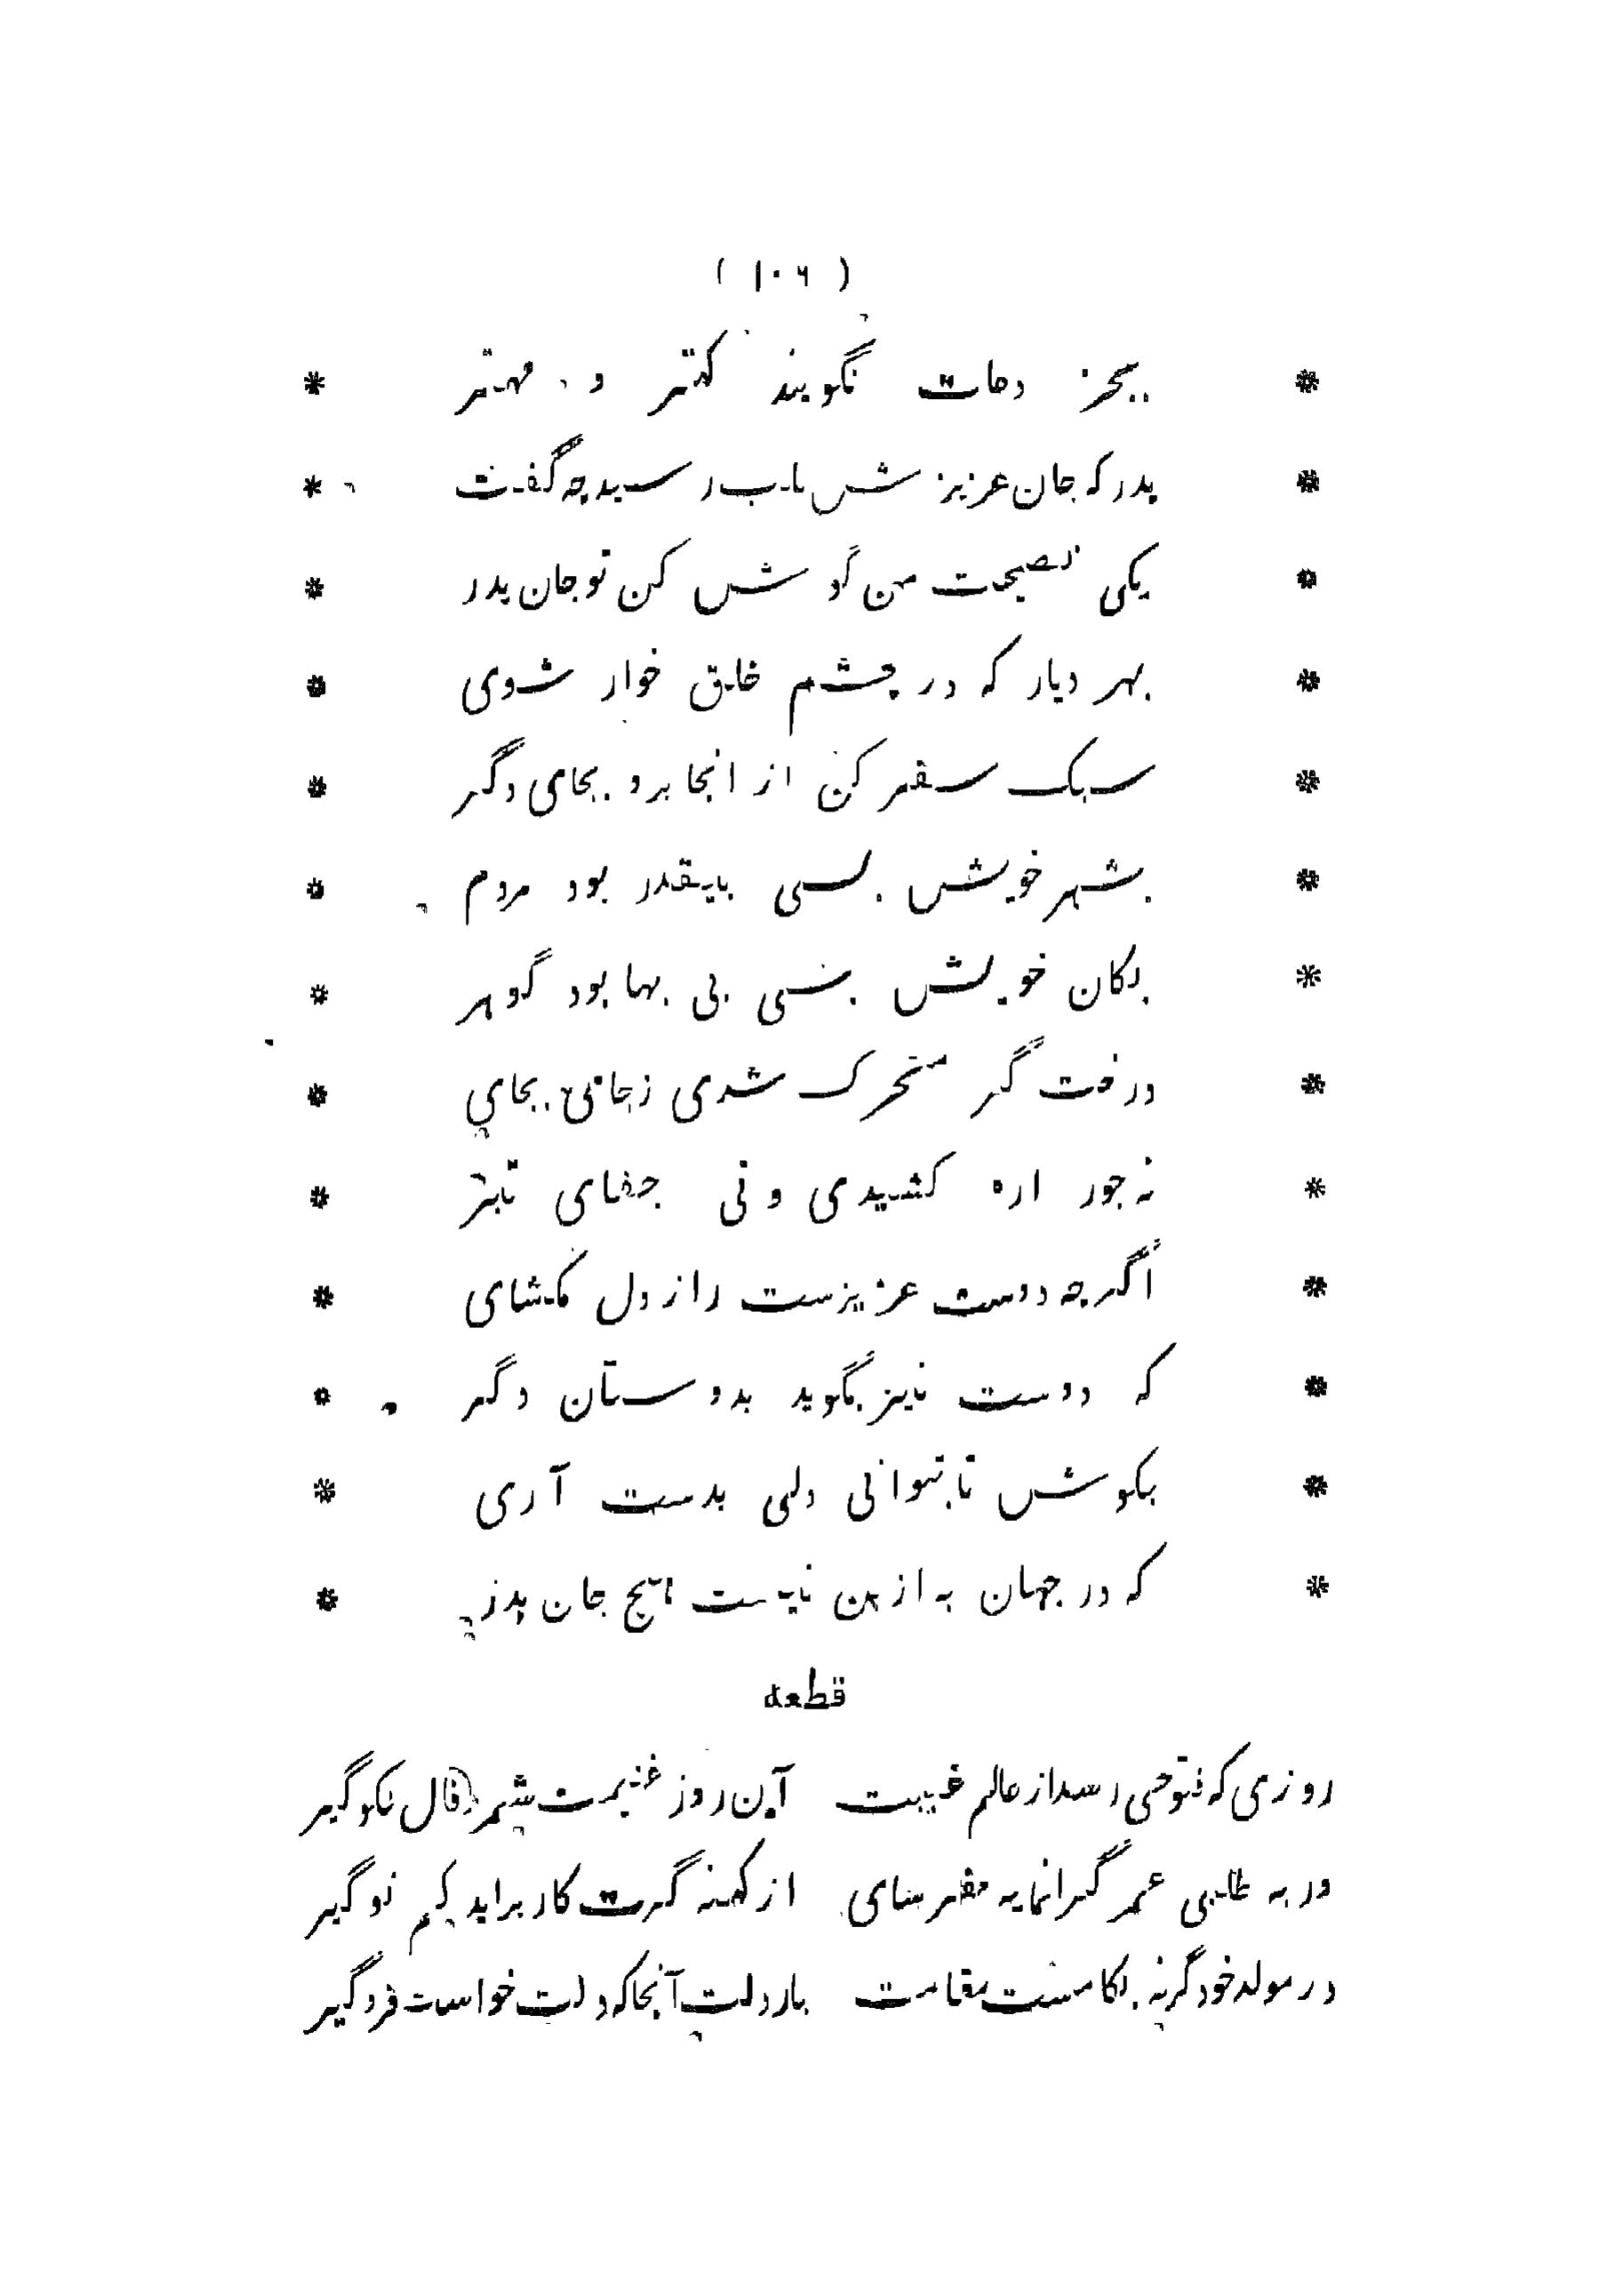 ( ۱۰۶ )
* بجز دعات نگویند کهتر و مهتر *
* پدر که جان عزیزش بلب رسید چه گفت *
* یکی نصیحت من گوش کن تو جان پدر *
* بهر دیار که در چشم خلق خوار شوی *
* سبک سفر کن از انجا برو بجای دگر *
* بشهر خویش بسی بیقدر بود مردم *
* بکان خویش بسی بی بها بود گوهر *
* درخت گر متحرک شدی زجای بجای *
* نه جور اره کشیدی و نی جفای تبر *
* اگرچه دوست عزیزست راز دل مکشای *
* که دوست نیز بگوید بدوستان دگر *
* بکوش تا بتوانی دلی بدست آری *
* که در جهان به ازین نیست هیچ جان پدر *
قطعه
روزی که فتوحی رسد از عالم غیبت آین روز غنیمت شمر و فال نکو گیر
ور به طلبی عمر گرانمایه مفرسای از کهنه گرت کار براید کم نو گیر
در مولد خود گر نه بکامست مقامت بار دلت آنجا که دلت خواست فرو گیر